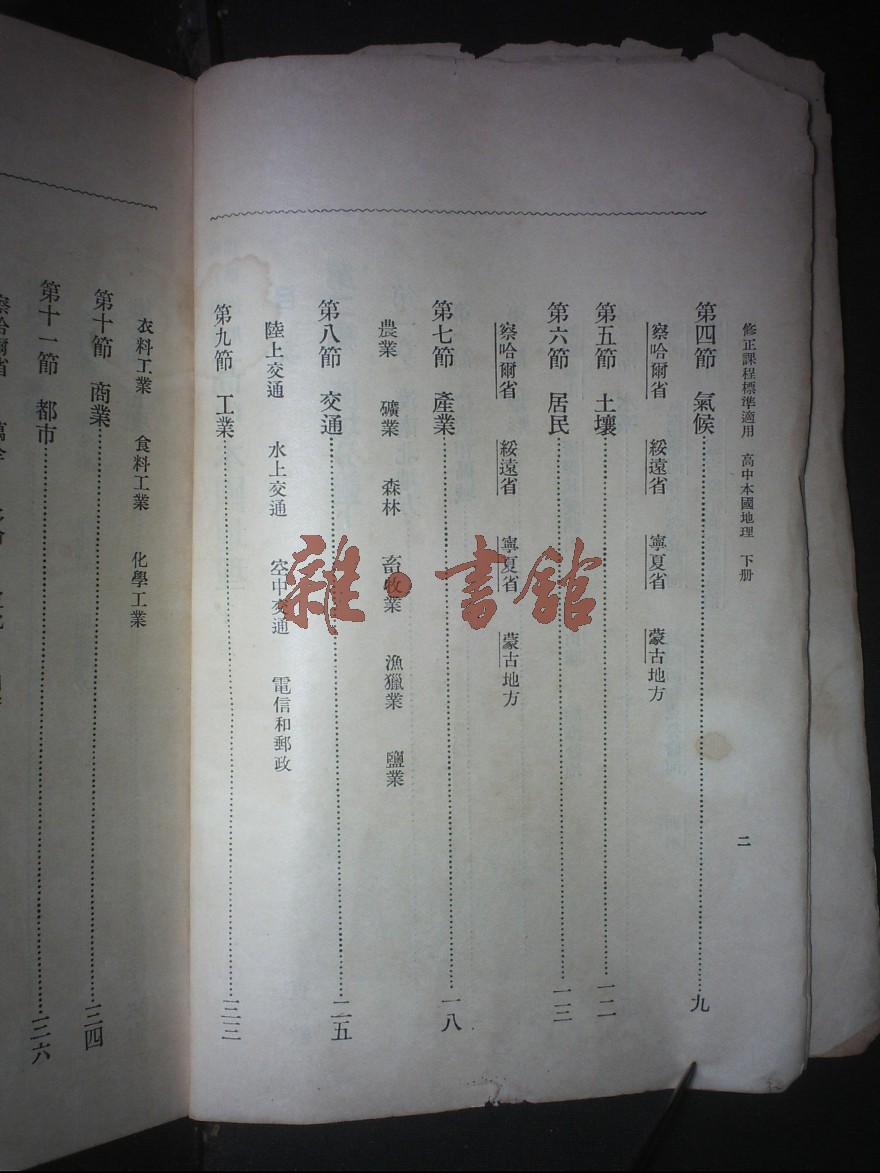 修正課程標準適用　高中本國地理　下册
二
第四節　氣候……九
察哈爾省　綏遠省　寧夏省　蒙古地方
第五節　土壤……一二
第六節　居民……一三
察哈爾省　綏遠省　寧夏省　蒙古地方
第七節　產業……一八
農業　礦業　森林　畜牧業　漁獵業　鹽業
第八節　交通……二五
陸上交通　水上交通　空中交通　電信和郵政
第九節　工業……三三
衣料工業　食料工業　化學工業
第十節　商業……三四
第十一節　都市……三六
察哈爾省　萬全
雜·書館